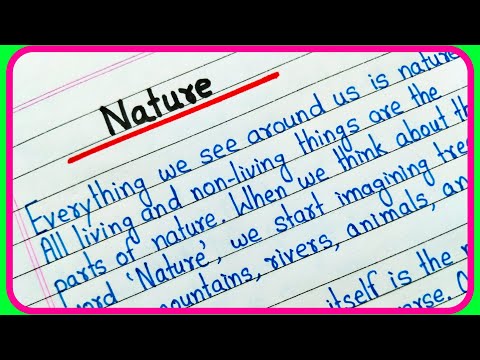 Nature
Everything we see around us is nature
All living and non-living things are the
parts of nature. When we think about
'Nature', we start imagining
mountains, rivers, animals,
itself is the